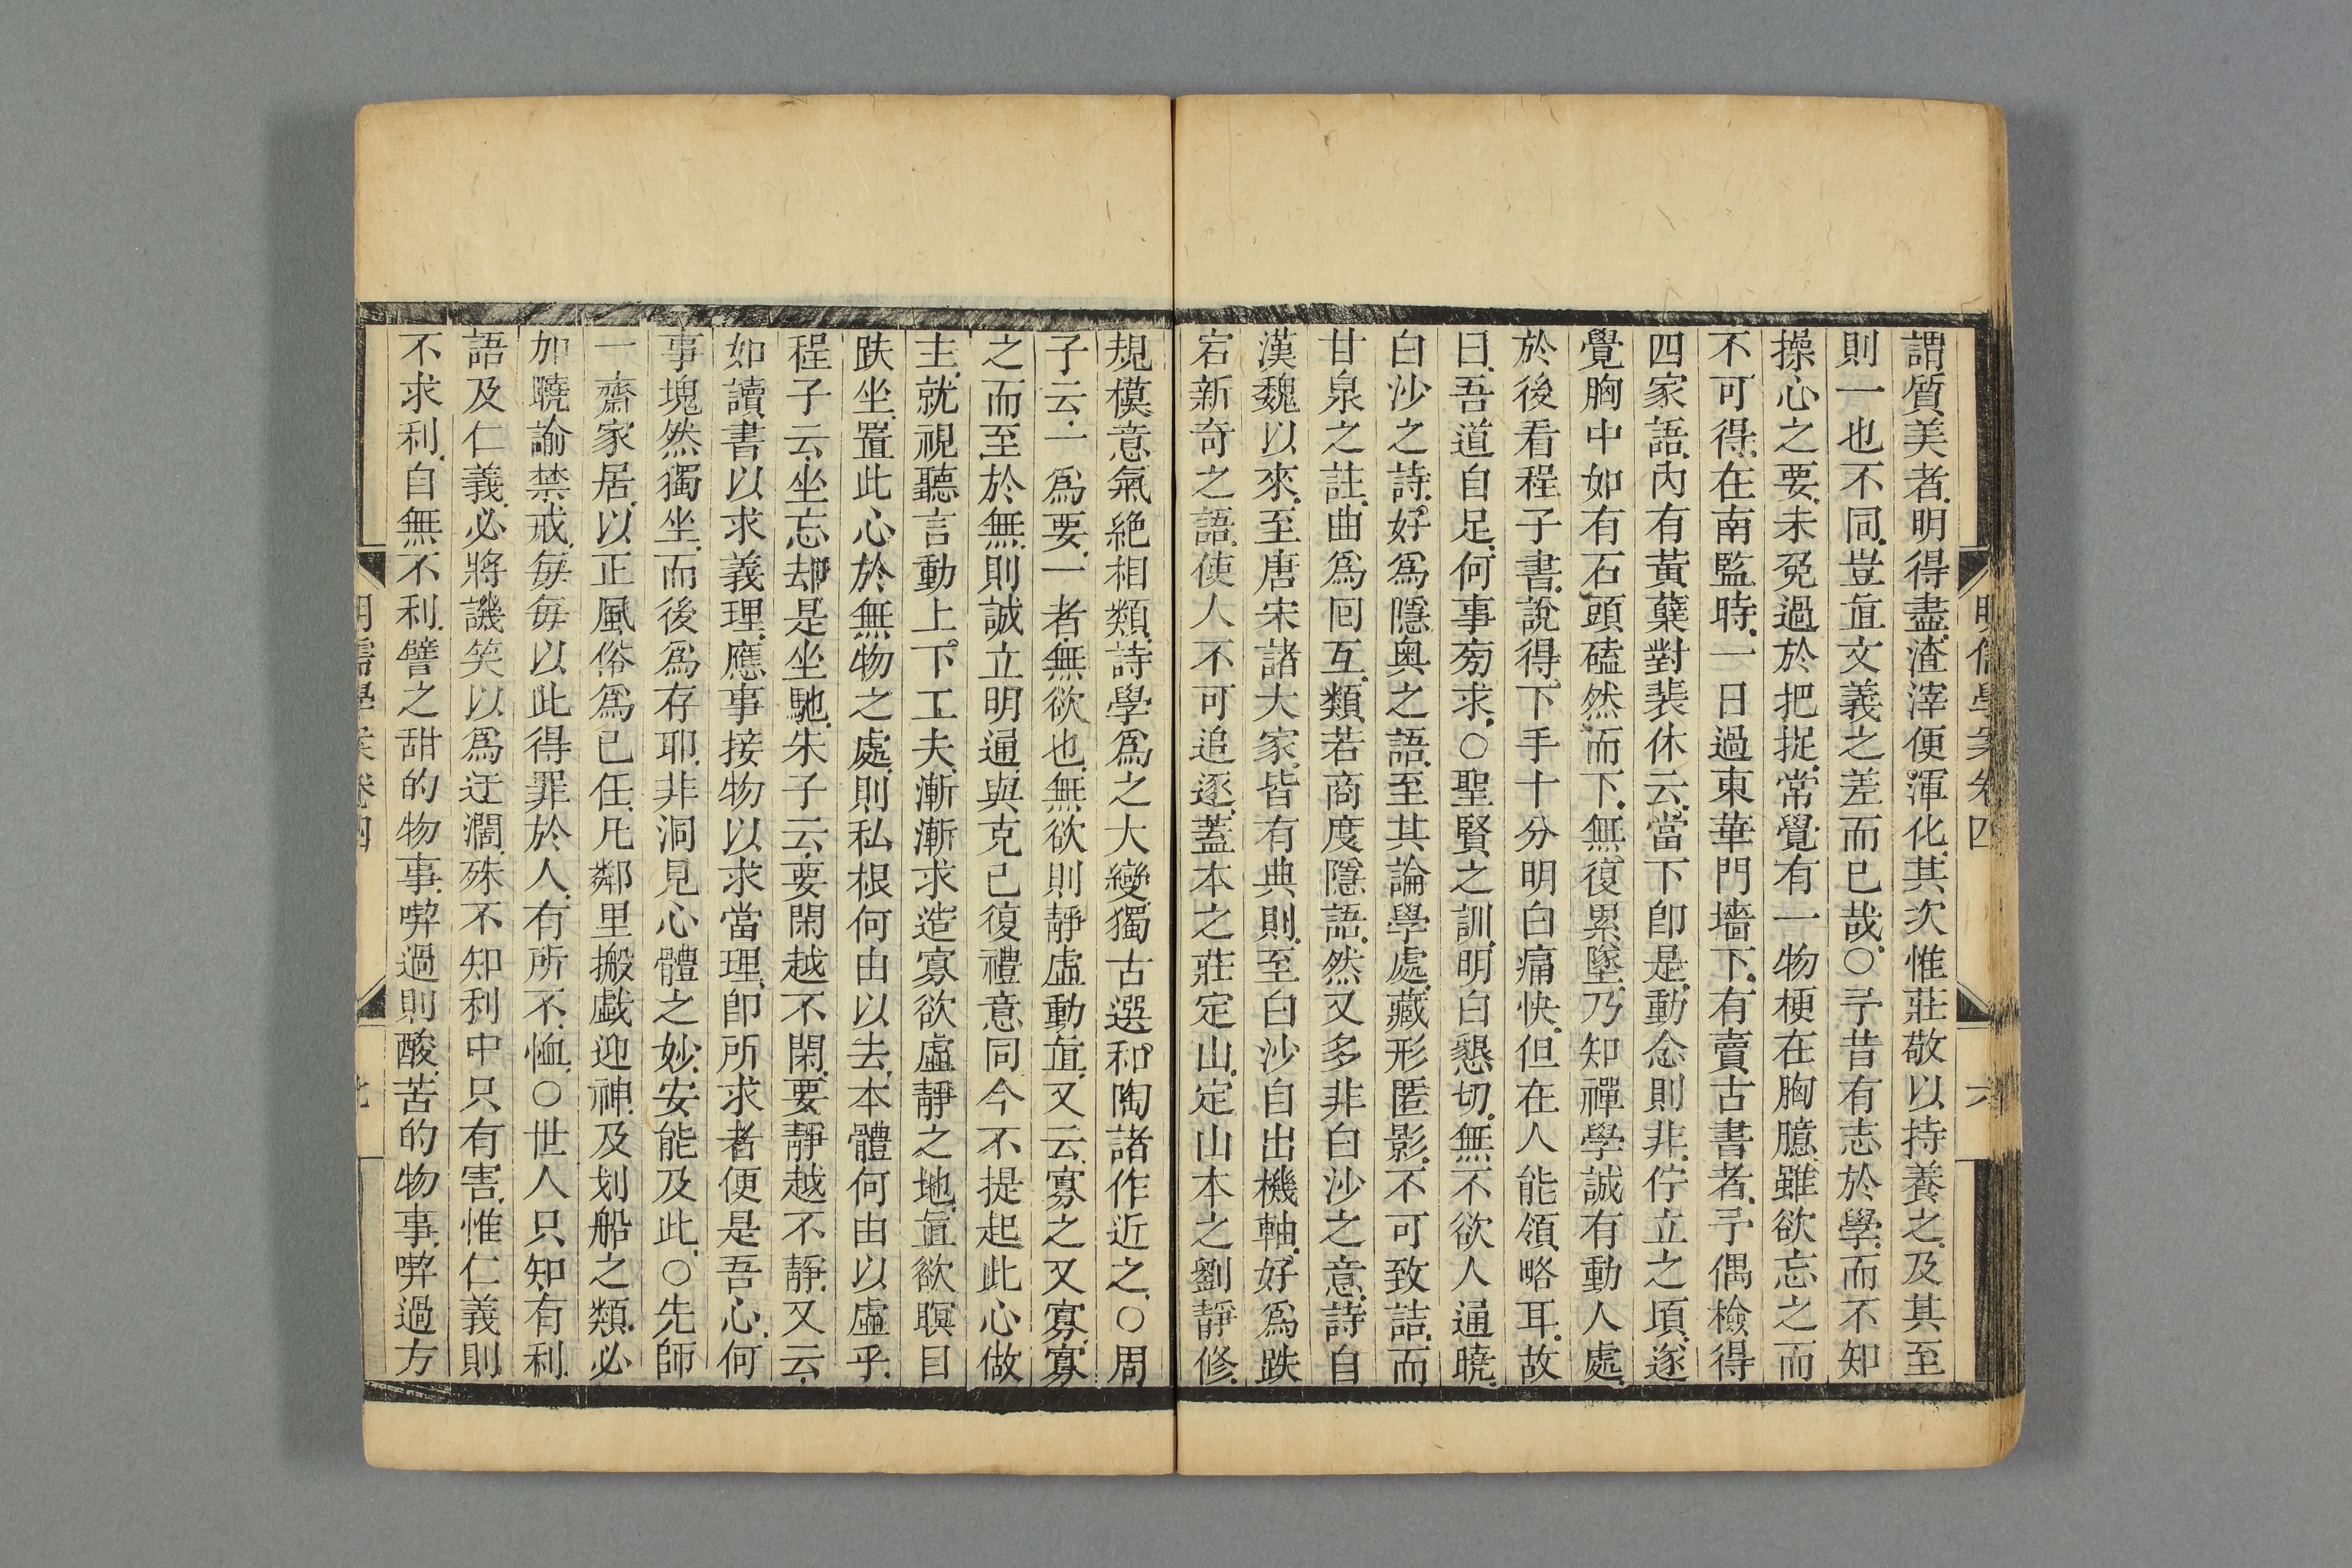 明儒學案卷四
六
謂質美者、明得盡、渣滓便渾化、其次惟莊敬以持養之、及其至
則一也、不同、豈直文義之差而已哉、○予昔有志於學、而不知
操心之要、未免過於把捉、常覺有一物梗在胸臆、雖欲忘之而
不可得、在南監時、一日過東華門墻下、有賣古書者、予偶檢得
四家語、內有黃蘗對裴休云、當下卽是、動念則非、佇立之頃、遂
覺胸中如有石頭磕然而下、無復累墜、乃知禪學誠有動人處、
於後看程子書、說得下手十分明白痛快、但在人能領略耳、故
曰、吾道自足、何事旁求、○聖賢之訓、明白懇切、無不欲人通曉、
白沙之詩、好爲隱奥之語、至其論學處、藏形匿影、不可致詰、而
甘泉之註、曲爲囘互、類若商度隱語、然又多非白沙之意、詩自
漢魏以來、至唐宋諸大家、皆有典則、至白沙自出機軸、好爲跌
宕新奇之語、使人不可追逐、蓋本之莊定山、定山本之劉靜修、
規模意氣絕相類、詩學爲之大變、獨古選和陶諸作近之、○周
子云、一爲要、一者、無欲也、無欲則靜虛動直、又云、寡之又寡、寡
之而至於無、則誠立明通、與克己復禮意同、今不提起此心做
主、就視聽言動上、下工夫、漸漸求造寡欲虛靜之地、直欲瞑目
趺坐、置此心於無物之處、則私根何由以去、本體何由以虛乎、
程子云、坐忘却是坐馳、朱子云、要閑越不閑、要靜越不靜、又云、
如讀書以求義理、應事接物以求當理、卽所求者便是吾心、何
事塊然獨坐、而後爲存耶、非洞見心體之妙、安能及此、○先師
一齋家居、以正風俗爲己任、凡鄰里搬戲迎神、及划船之類、必
加曉諭禁戒、每每以此得罪於人、有所不恤、○世人只知有利、
語及仁義、必將譏笑以爲迂濶、殊不知利中只有害、惟仁義則
不求利、自無不利、譬之甜的物事、喫過則酸、苦的物事、喫過方
明儒學案卷四